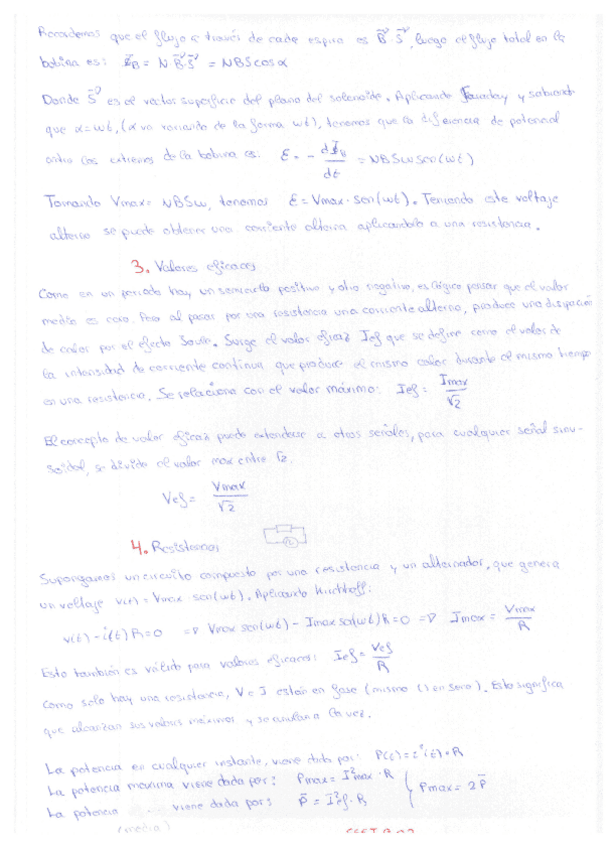 Recordemos que el flujo a través de cada espira es B⃗·S⃗, luego el flujo total en la
bobina es: Φ_B = N B⃗·S⃗ = NBScosα
Donde S⃗ es el vector superficie del plano del solenoide. Aplicando Faraday y sabiendo
que α=ωt, (α va variando de la forma ωt), tenemos que la diferencia de potencial
entre los extremos de la bobina es: ε = - dΦ_B/dt = NBSω sen(ωt)
Tomando Vmax = NBSω, tenemos ε = Vmax · sen(ωt). Teniendo este voltaje
alterno se puede obtener una corriente alterna aplicándolo a una resistencia.
3. Valores eficaces
Como en un periodo hay un semiciclo positivo y otro negativo, es lógico pensar que el valor
medio es cero. Pero al pasar por una resistencia una corriente alterna, produce una disipación
de calor por el efecto Joule. Surge el valor eficaz Ief que se define como el valor de
la intensidad de corriente continua que produce el mismo calor durante el mismo tiempo
en una resistencia. Se relaciona con el valor máximo: Ief = Imax/√2
El concepto de valor eficaz puede extenderse a otras señales, para cualquier señal sinu-
soidal, se divide el valor max entre √2.
Vef = Vmax/√2
4. Resistencias
Supongamos un circuito compuesto por una resistencia y un alternador, que genera
un voltaje v(t) = Vmax sen(ωt). Aplicando Kirchhoff:
v(t) - i(t) R = 0 => Vmax sen(ωt) - Imax sen(ωt) R = 0 => Imax = Vmax/R
Esto también es válido para valores eficaces: Ief = Vef/R
Como solo hay una resistencia, V e I están en fase (mismo () en seno). Esto significa
que alcanzan sus valores máximos y se anulan a la vez.
La potencia en cualquier instante, viene dada por: P(t) = i²(t) · R
La potencia maxima viene dada por: Pmax = I²max · R } Pmax = 2P̄
La potencia viene dada por: P̄ = I²ef · R
(media)